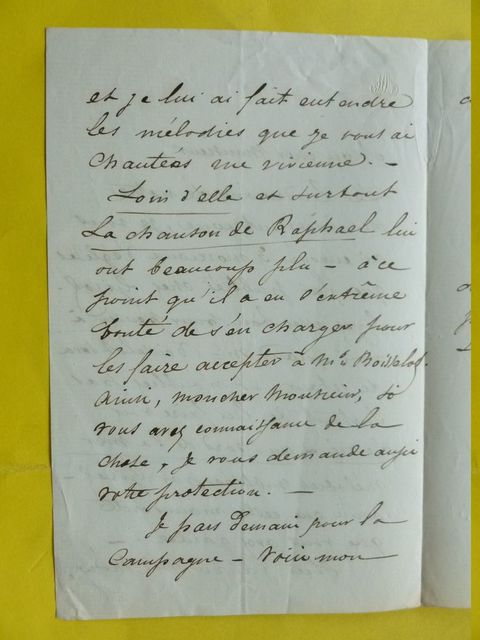 et je lui ai fait entendre
les mélodies que je vous ai
chantées rue vivienne. –
Loin d'elle et surtout
La chanson de Raphael lui
ont beaucoup plu – à ce
point qu'il a eu l'extrême
bonté de s'en charger pour
les faire accepter à Mr. Boisselot.
Ainsi, mon cher Monsieur, si
vous avez connaissance de la
chose, je vous demande aussi
votre protection. –
Je pars demain pour la
Campagne – Voici mon